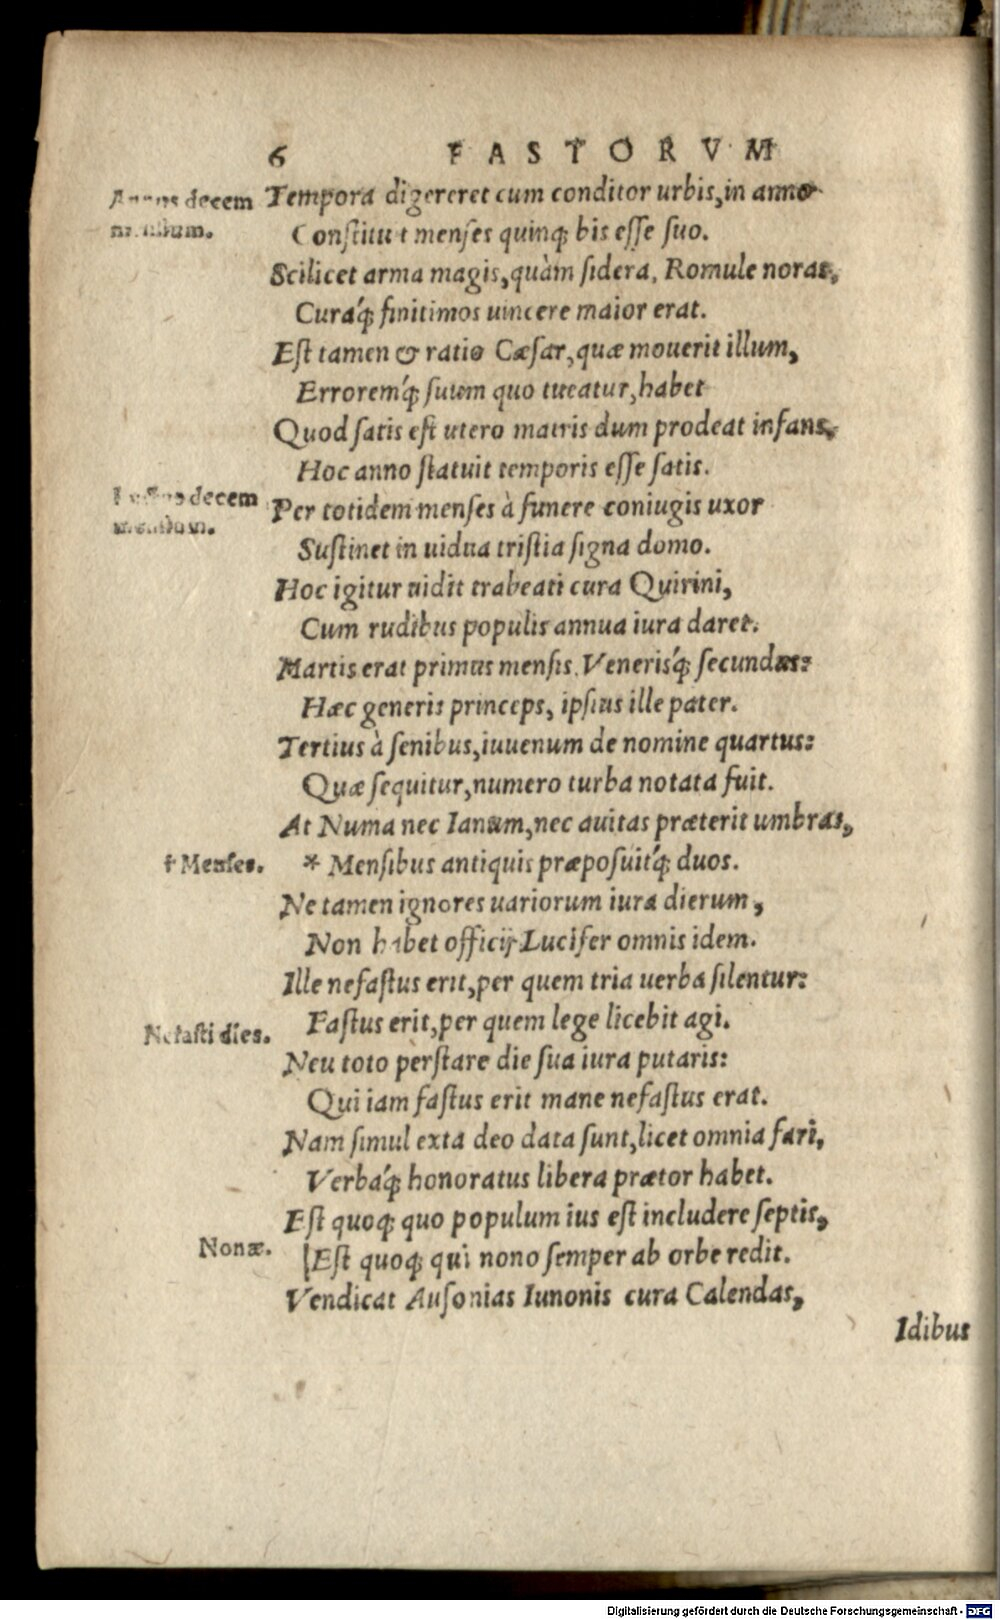 6 FASTORVM
Annus decem
mensium.
Tempora digereret cum conditor urbis, in anno
Constituit menses quinq; bis esse suo.
Scilicet arma magis, quàm sidera, Romule noras,
Curáq; finitimos uincere maior erat.
Est tamen & ratio Cæsar, quæ mouerit illum,
Erroremq́; suum quo tueatur, habet
Quod satis est utero matris dum prodeat infans,
Hoc anno statuit temporis esse satis.
Luctus decem
mensium.
Per totidem menses à funere coniugis uxor
Sustinet in uidua tristia signa domo.
Hoc igitur uidit trabeati cura Quirini,
Cum rudibus populis annua iura daret.
Martis erat primus mensis, Venerisq́; secundus:
Hæc generis princeps, ipsius ille pater.
Tertius à senibus, iuuenum de nomine quartus:
Quæ sequitur, numero turba notata fuit.
At Numa nec Ianum, nec auitas præterit umbras,
† Menses.
* Mensibus antiquis præposuitq́; duos.
Ne tamen ignores uariorum iura dierum,
Non habet officij Lucifer omnis idem.
Ille nefastus erit, per quem tria uerba silentur:
Fastus erit, per quem lege licebit agi.
Nefasti dies.
Neu toto perstare die sua iura putaris:
Qui iam fastus erit mane nefastus erat.
Nam simul exta deo data sunt, licet omnia fari,
Verbaq́; honoratus libera prætor habet.
Est quoq; quo populum ius est includere septis,
Nonæ.
Est quoq; qui nono semper ab orbe redit.
Vendicat Ausonias Iunonis cura Calendas,
Idibus
Digitalisierung gefördert durch die Deutsche Forschungsgemeinschaft - DFG